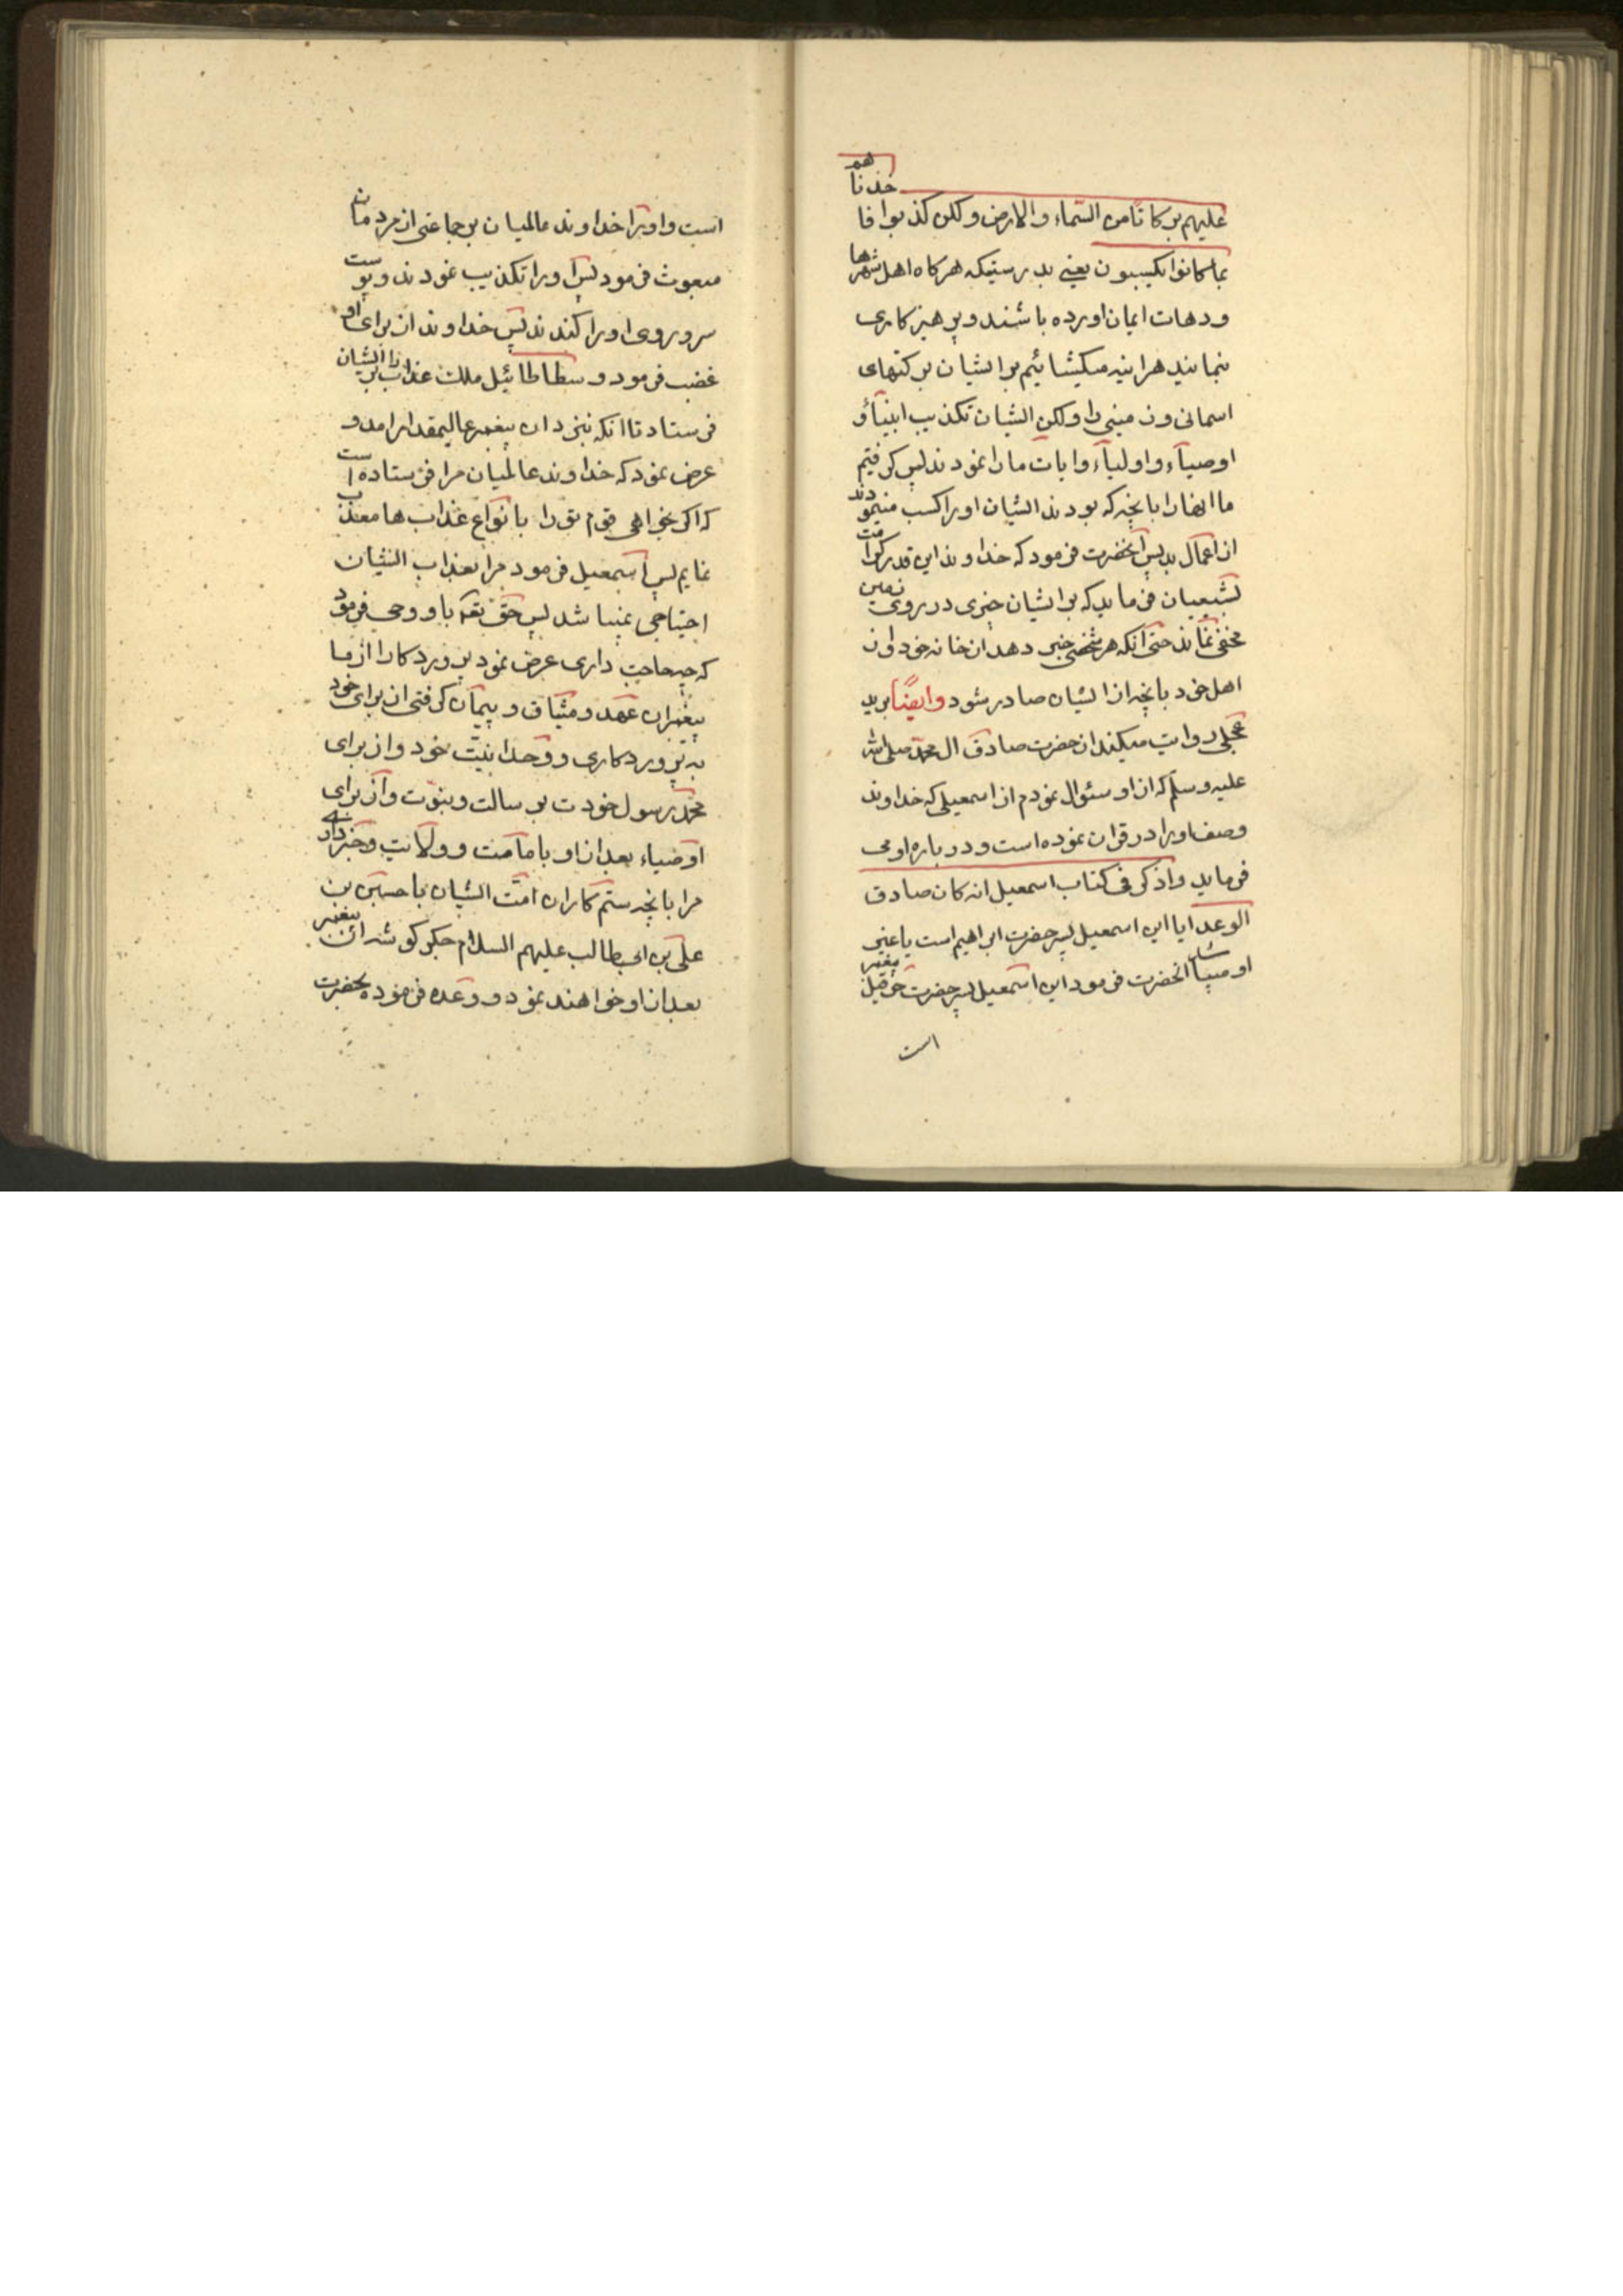 علیهم برکاتا من السّماء والارض ولکن کذبوا فا
خذنا
هم
بما کانوا یکسبون یعنی بدرستیکه هرکاه اهل شهرها
ودهات ایمان اورده باشند وپرهیزکاری
بنمایند هراینه میکشائیم برایشان برکتهای
اسمانی وزمینی را ولکن ایشان تکذیب انبیآء و
اوصیآء واولیآء وایات مارا نمودند پس کرفتیم
ما انهارا بانچه که بودند ایشان اورا کسب مینمودند
از اعمال بد پس آنحضرت فرمود که خداوند این قدر کرامت
بشیعیان فرماید که برایشان چیزی در روی زمین
مخفی نماند حتی آنکه هر شخصی خبر دهد از خانه خود واز
اهل خود بانچه از ایشان صادر شود وایضًا برید
عجلی روایت میکند از حضرت صادق ال محمد صلی الله
علیه وسلّم که از او سئوال نمودم از اسمعیلی که خداوند
وصف اورا در قران نموده است ودر باره او می
فرماید واذکر فی کتاب اسمعیل انه کان صادق
الوعد ایا این اسمعیل پسر حضرت ابراهیم است یا غیر
او میباشد انحضرت فرمود این اسمعیل پسر حضرت حزقیل پیغمبر
است
است واورا خداوند عالمیان بر جماعتی از مردمان
مبعوث فرمود پس اورا تکذیب نمودند وپوست
سر وروی اورا کندند پس خداوند از برای او
غضب فرمود وسطاطائیل ملک عذاب را برایشان
فرستاد تا انکه بنزد ان پیغمبر عالیمقدار امد و
عرض نمود که خداوند عالمیان مرا فرستاده است
که اکر بخواهی قوم تو را بانواع عذاب ها معذب
نمایم پس اسمعیل فرمود مرا بعذاب ایشان
احتیاجی نمیباشد پس حق تعه باو وحی فرمود
که چه حاجت داری عرض نمود پروردکارا از ما
پیغمبران عهد ومیثاق وپیمان کرفتی از برای خود
به پروردکاری ووحدانیّت خود واز برای
محمّد رسول خودت برسالت ونبوّت واز برای
اوصیاء بعد از او بامامت وولایت وخبر داده
مرا بانچه ستم کاران امّت ایشان با حسین بن
علی بن ابیطالب علیهم السلام جکر کوشه ان پیغمبر
بعد از او خواهند نمود ووعده فرموده بحضرت